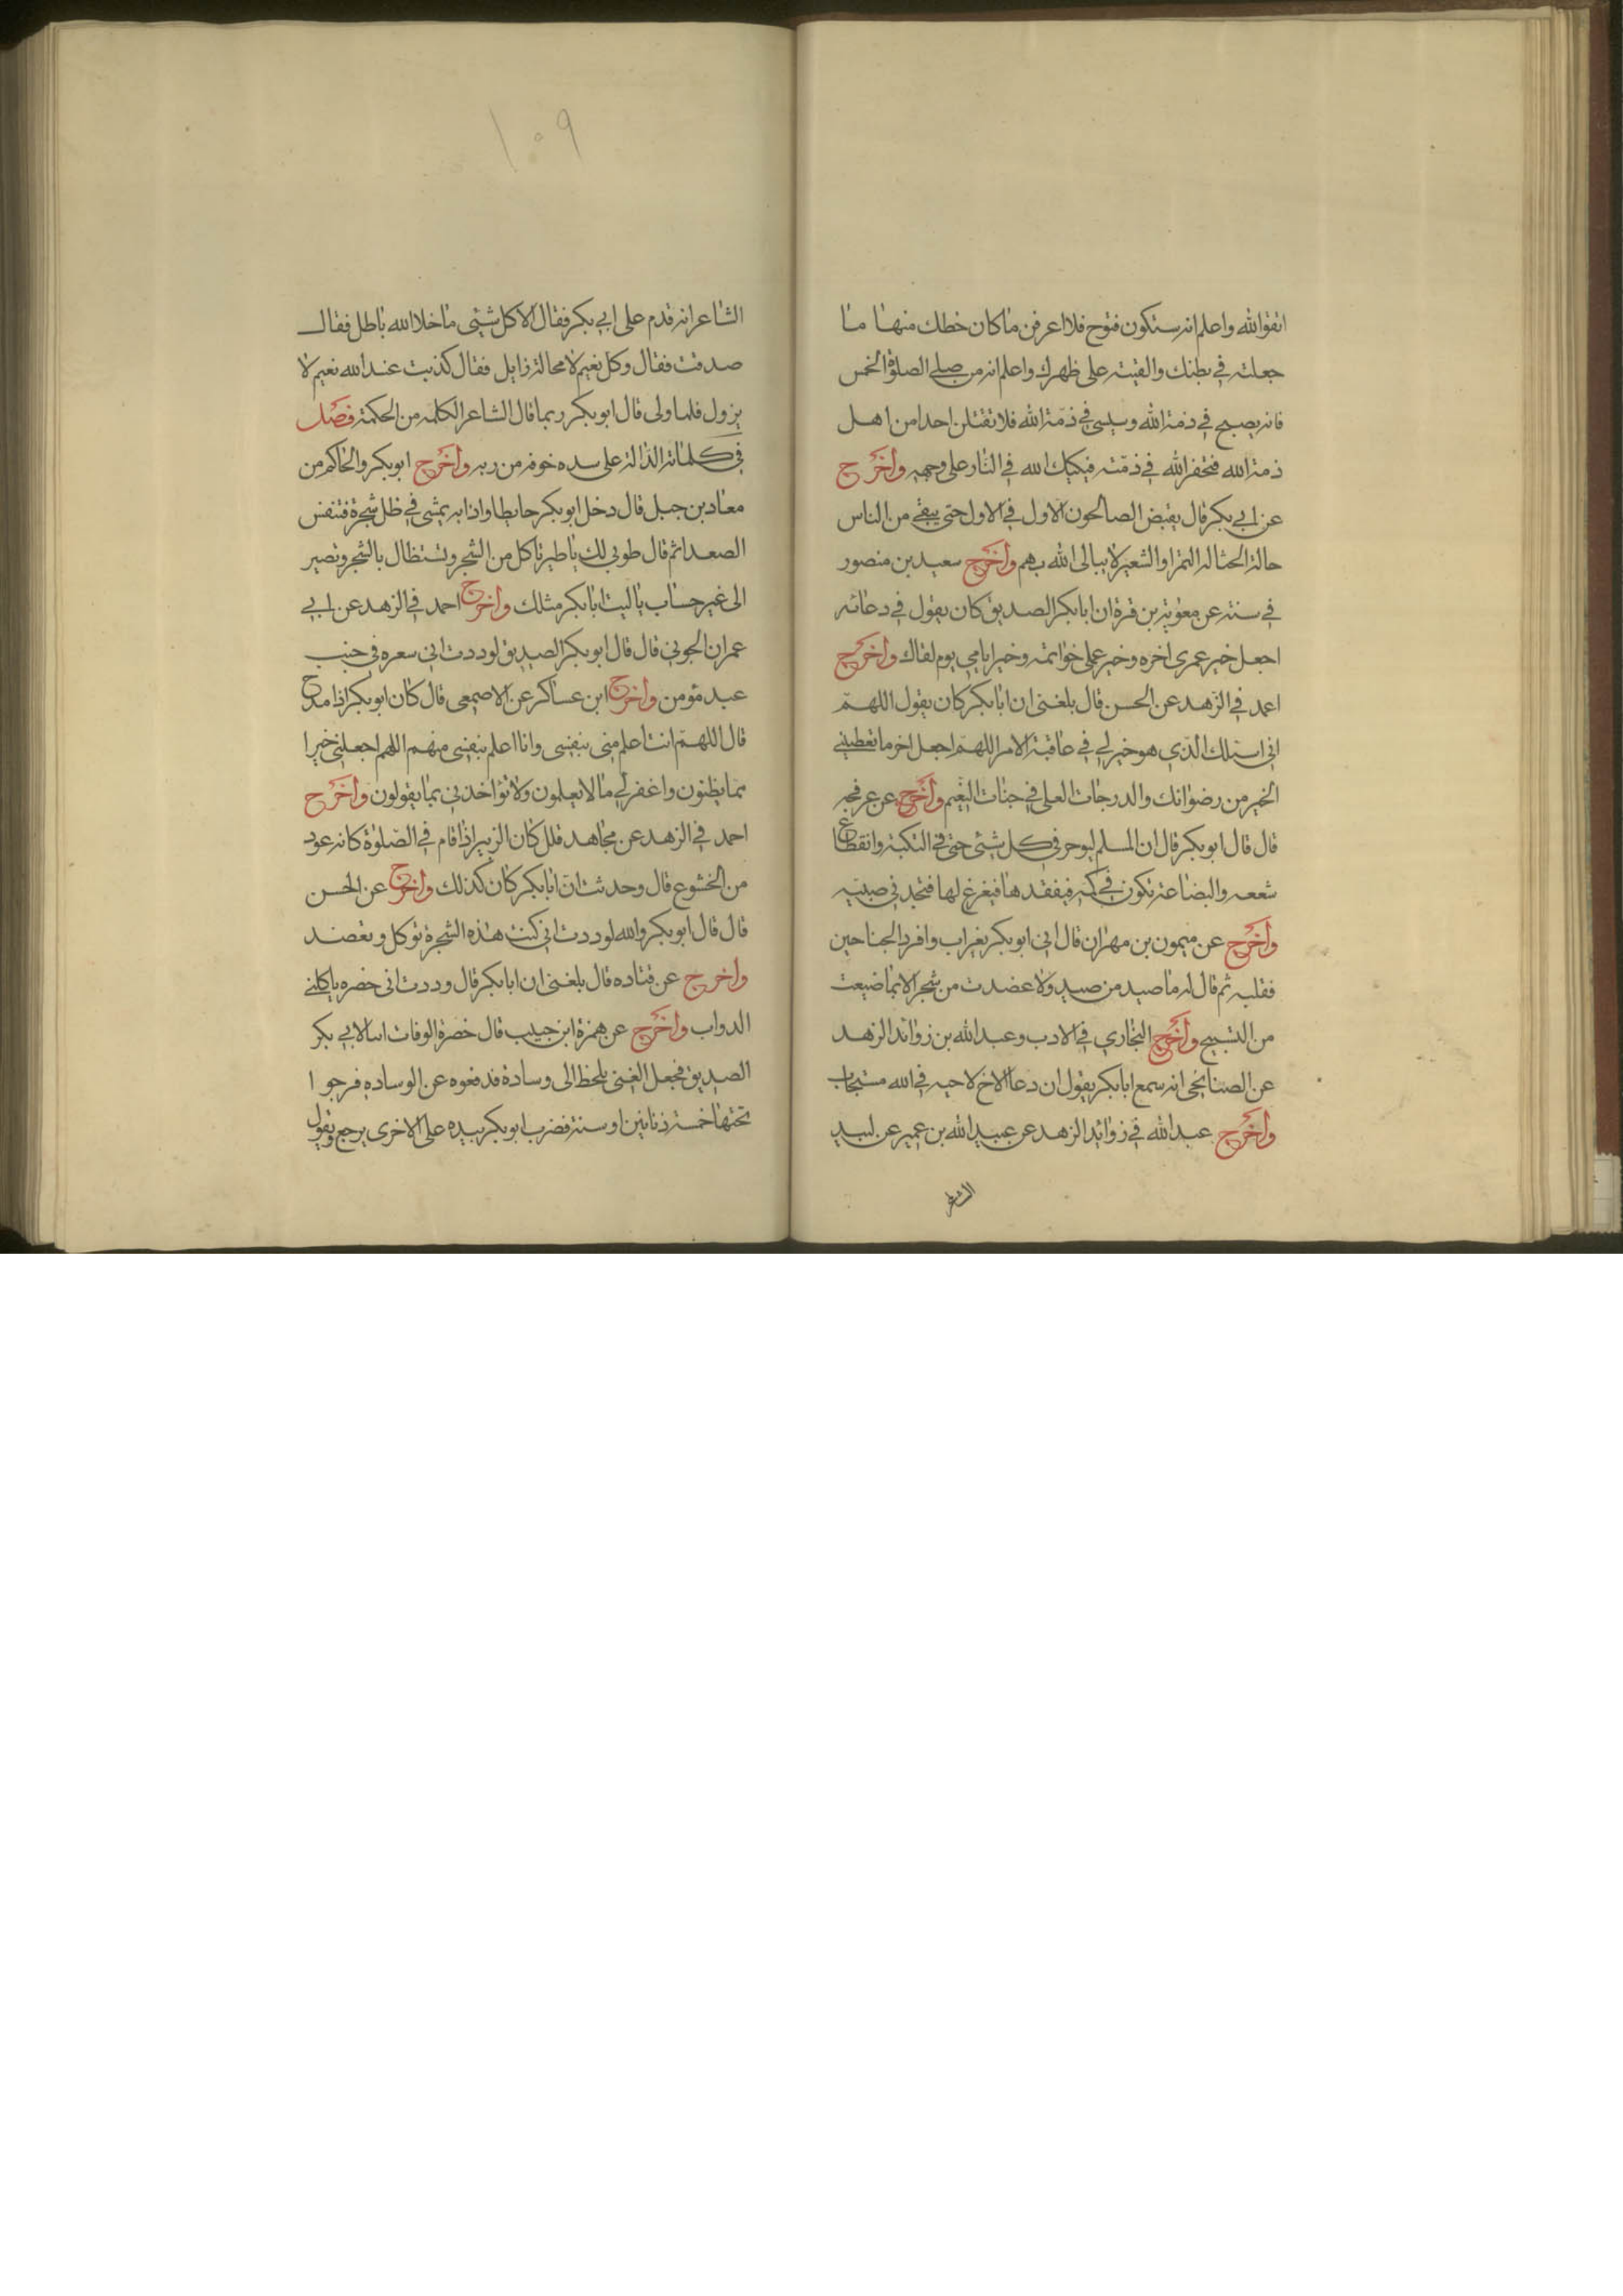 اتقوا الله واعلم انه ستكون فتوح فلا اعرفن ما كان خطك منها ما
جعلته في بطنك والقيته على ظهرك واعلم انه من صلے الصلوة الخمس
فانه يصبح في ذمة الله ويمسي في ذمّة الله فلا تقتلن احدا من اهل
ذمة الله فتخفر الله في ذمّته فيكبك الله في النار على وجهه وأخرج
عن ابي بكر قال يقبض الصالحون الاول في الاول حتى يبقے من الناس
حالة الحثالة التمر او الشعير لا يبالى الله بهم وأخرج سعيد بن منصور
في سننه عن معوية بن قرة ان ابا بكر الصديق كان يقول في دعائه
اجعل خير عمرى اخره وخير عملي خواتمه وخير ايامي يوم لقاك وأخرج
احمد في الزهد عن الحسن قال بلغني ان ابا بكر كان يقول اللهمّ
اني اسئلك الّذي هو خير لي في عاقبة الامر اللهمّ اجعل اخر ما تعطيني
الخير من رضوانك والدرجات العلى في جنات النعيم وأخرج عن عرفجه
قال قال ابو بكر قال ان المسلم ليوجر في كل شيئى حتى في النكبة وانقطاع
شععه والبضاعة تكون في كمه فيفقدها فيفزع لها فتجد في ضبنه
وأخرج عن ميمون بن مهران قال اتي ابو بكر بغراب وافر الجناحين
فقلبه ثم قال له ما صيد من صيد ولا عضدت من شجر الا بما ضيعت
من التسبيح وأخرج البخاري في الادب وعبد الله بن زوائد الزهد
عن الصنابحى انه سمع ابا بكر يقول ان دعا الاخ لاخيه في الله مستجاب
وأخرج عبد الله في زوائد الزهد عن عبيد الله بن عمير عن لبيد
الشاعر
١٠٩
الشاعر انه قدم على ابي بكر فقال الا كل شيئى ما خلا الله باطل فقال
صدقت فقال وكل نعيم لا محالة زايل فقال كذبت عند الله نعيم لا
يزول فلما ولى قال ابو بكر ربما قال الشاعر الكلمه من الحكمة فصل
في كلماته الدالة على سده خوفه من ربه وأخرج ابو بكر والحاكم من
معاد بن جبل قال دخل ابو بكر حايطا واذا به يمشي في ظل شجرة فتنفس
الصعدا ثم قال طوبى لك يا طير تاكل من الشجر وتستظال بالشجر وتصير
الى غير حساب يا ليت ابا بكر مثلك وأخرج احمد في الزهد عن ابي
عمران الجوني قال قال ابو بكر الصديق لوددت اني سعره في جنب
عبد مؤمن وأخرج ابن عساكر عن الاصمعى قال كان ابو بكر اذا مدح
قال اللهمّ انت اعلم منى بنفسى وانا اعلم بنفسى منهم اللهم اجعلني خيرا
مما يظنون واغفر لي ما لا يعلمون ولا تؤاخذني بما يقولون وأخرج
احمد في الزهد عن مجاهد قلل كان الزبير اذا قام في الصّلوة كانه عود
من الخشوع قال وحدثت انّ ابا بكر كان كذلك وأخرج عن الحسن
قال قال ابو بكر والله لوددت اني كنت هذه الشجرة توكل وتعضد
وأخرج عن قتاده قال بلغنى ان ابا بكر قال وددت انى خضره ياكلني
الدواب وأخرج عن همزة ابن حبيب قال حضرة الوفات ابنا لابي بكر
الصديق فجعل الغنى يلحظ الى وسادة فدفعوه عن الوساده فرجوا
تحتها خمسة دنانين او ستة فضرب ابو بكر بيده على الاخرى يرجع ويقول